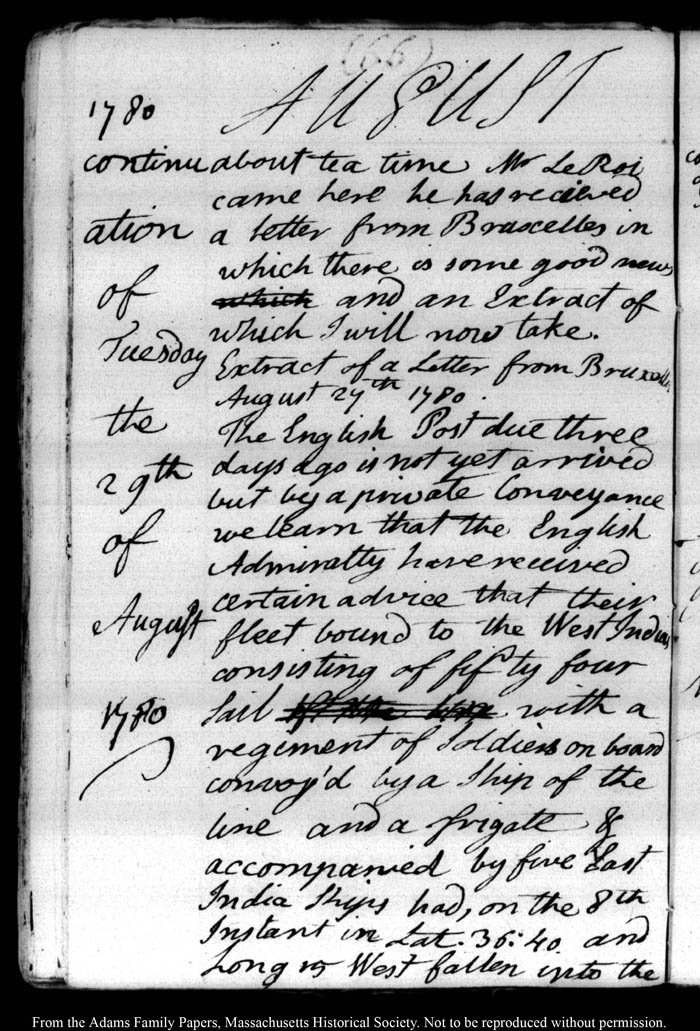 (66)
AUGUST
1780
continu
ation
of
Tuesday
the
29th
of
August
1780
about tea time Mr Le Roi
came here he has recieved
a letter from Bruxcelles in
which there is some good news
which and an Extract of
which I will now take.
Extract of a Letter from Bruxelles
August 27th 1780.
The English Post due three
days ago is not yet arrived
but by a private Conveyance
we learn that the English
Admiralty have received
certain advice that their
fleet bound to the West Indias
consisting of fifty four
Sail with a
regiment of Soldiers on board
convoy'd by a Ship of the
line and a frigate &
accompanied by five East
India Ships had, on the 8th
Instant in Lat: 36: 40 and
Long 15 West fallen into the
From the Adams Family Papers, Massachusetts Historical Society. Not to be reproduced without permission.